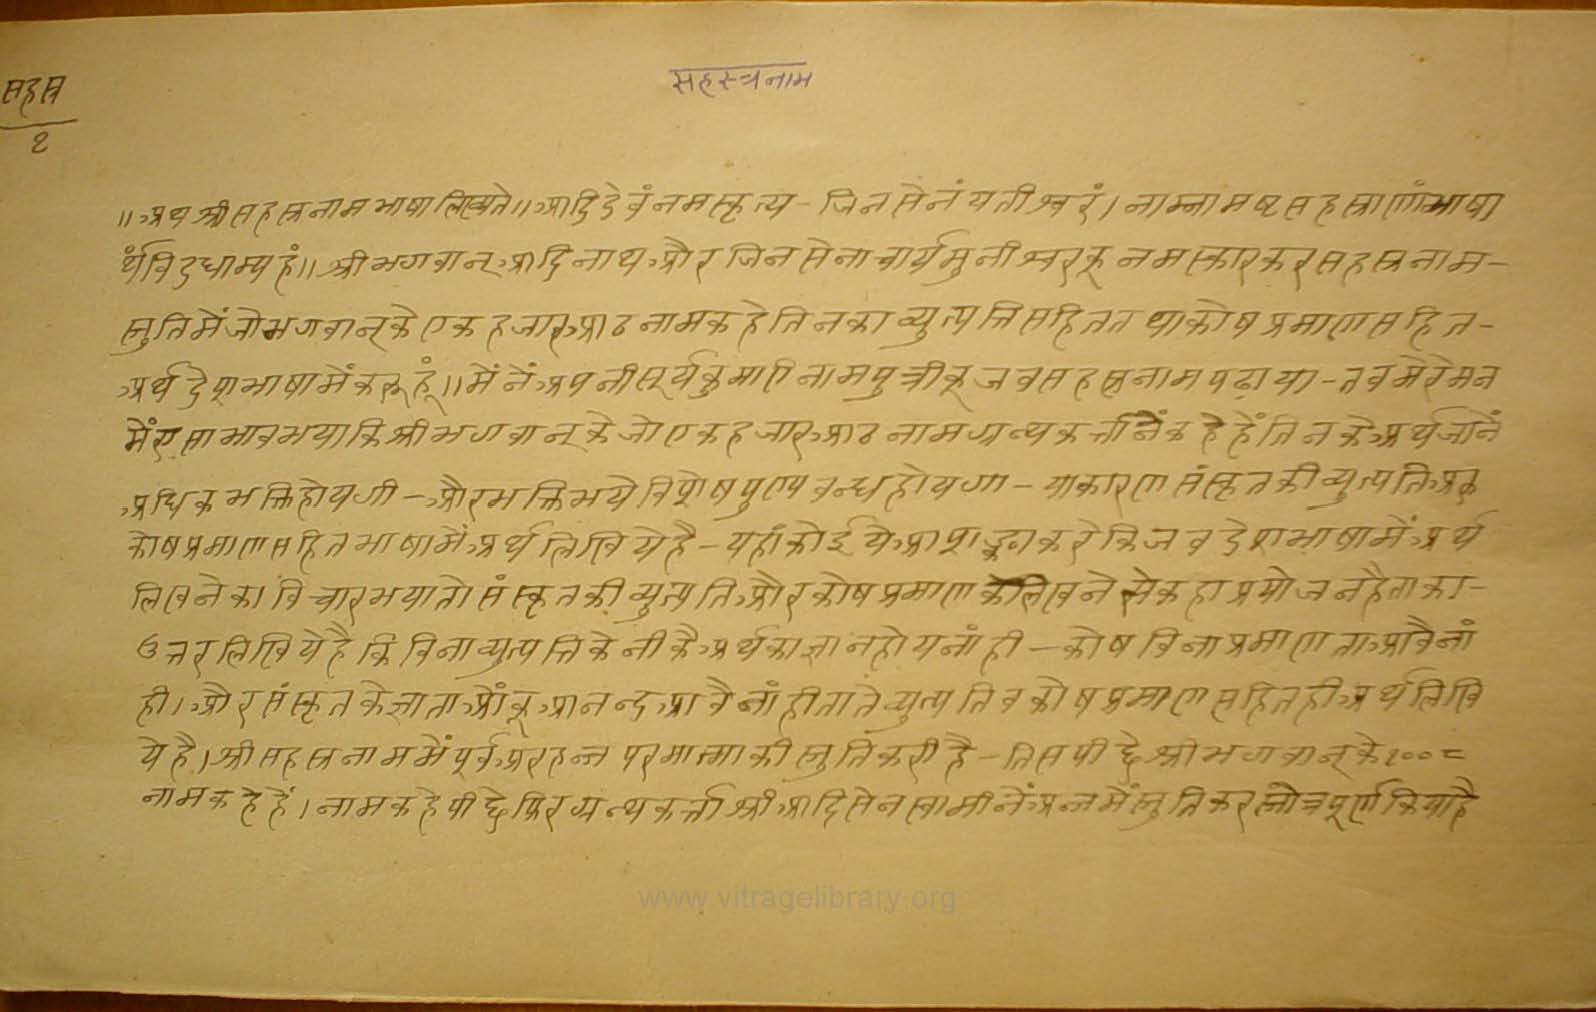 सहस्त्रनाम
सहस्र
१
॥ अथ श्रीसहस्रनाम भाषा लिख्यते ॥ आदिदेवं नमस्कृत्य - जिनसेनं यतीश्वरं । नाम्नामष्टसहस्राणां भाषा
र्थं विदधाम्यहं ॥ श्री भगवान् आदिनाथ और जिनसेनाचार्य मुनीश्वरकू नमस्कार कर सहस्रनाम -
स्तुति में जो भगवान् के एक हजार आठ नाम कहे तिनका व्युत्पत्ति सहित तथा कोष प्रमाण सहित -
अर्थ देश भाषा में करूं हूं ॥ में नें अपनी सूर्यकुमारी नाम पुत्रीकू जब सहस्रनाम पढ़ाया - तब मेरे मन
में एसा भाव भया कि श्री भगवान् के जो एक हजार आठ नाम ग्रन्थकर्त्ता नें कहे हैं तिनके अर्थ जानें
अधिक भक्ति होयगी - और भक्ति भये विशेष पुण्य बन्ध होयगा - या कारण संस्कृत की व्युत्पत्ति अरु
कोष प्रमाण सहित भाषा में अर्थ लिखिये है - यहां कोई ये आशङ्का करे कि जब देश भाषा में अर्थ
लिखने का विचार भया तो संस्कृत की व्युत्पत्ति और कोष प्रमाण के लिखने से कहा प्रयोजन है ताका -
उत्तर लिखिये है कि विना व्युत्पत्ति के नीकै अर्थ का ज्ञान होय नांही - कोष विना प्रमाणता आवै नां
ही । और संस्कृत के ज्ञाताओंकू आनन्द आवै नांही तातें व्युत्पत्ति व कोष प्रमाण सहित ही अर्थ लिखि
ये है । श्री सहस्रनाम में पूर्व अरहन्त परमात्मा की स्तुति करी है - तिस पीछे श्री भगवान् के १००८
नाम कहे हैं । नाम कहे पीछे फिर ग्रन्थकर्त्ता श्री आदिसेन स्वामी नें अन्त में स्तुति कर स्तोत्र पूर्ण किया है
www.vitragelibrary.org